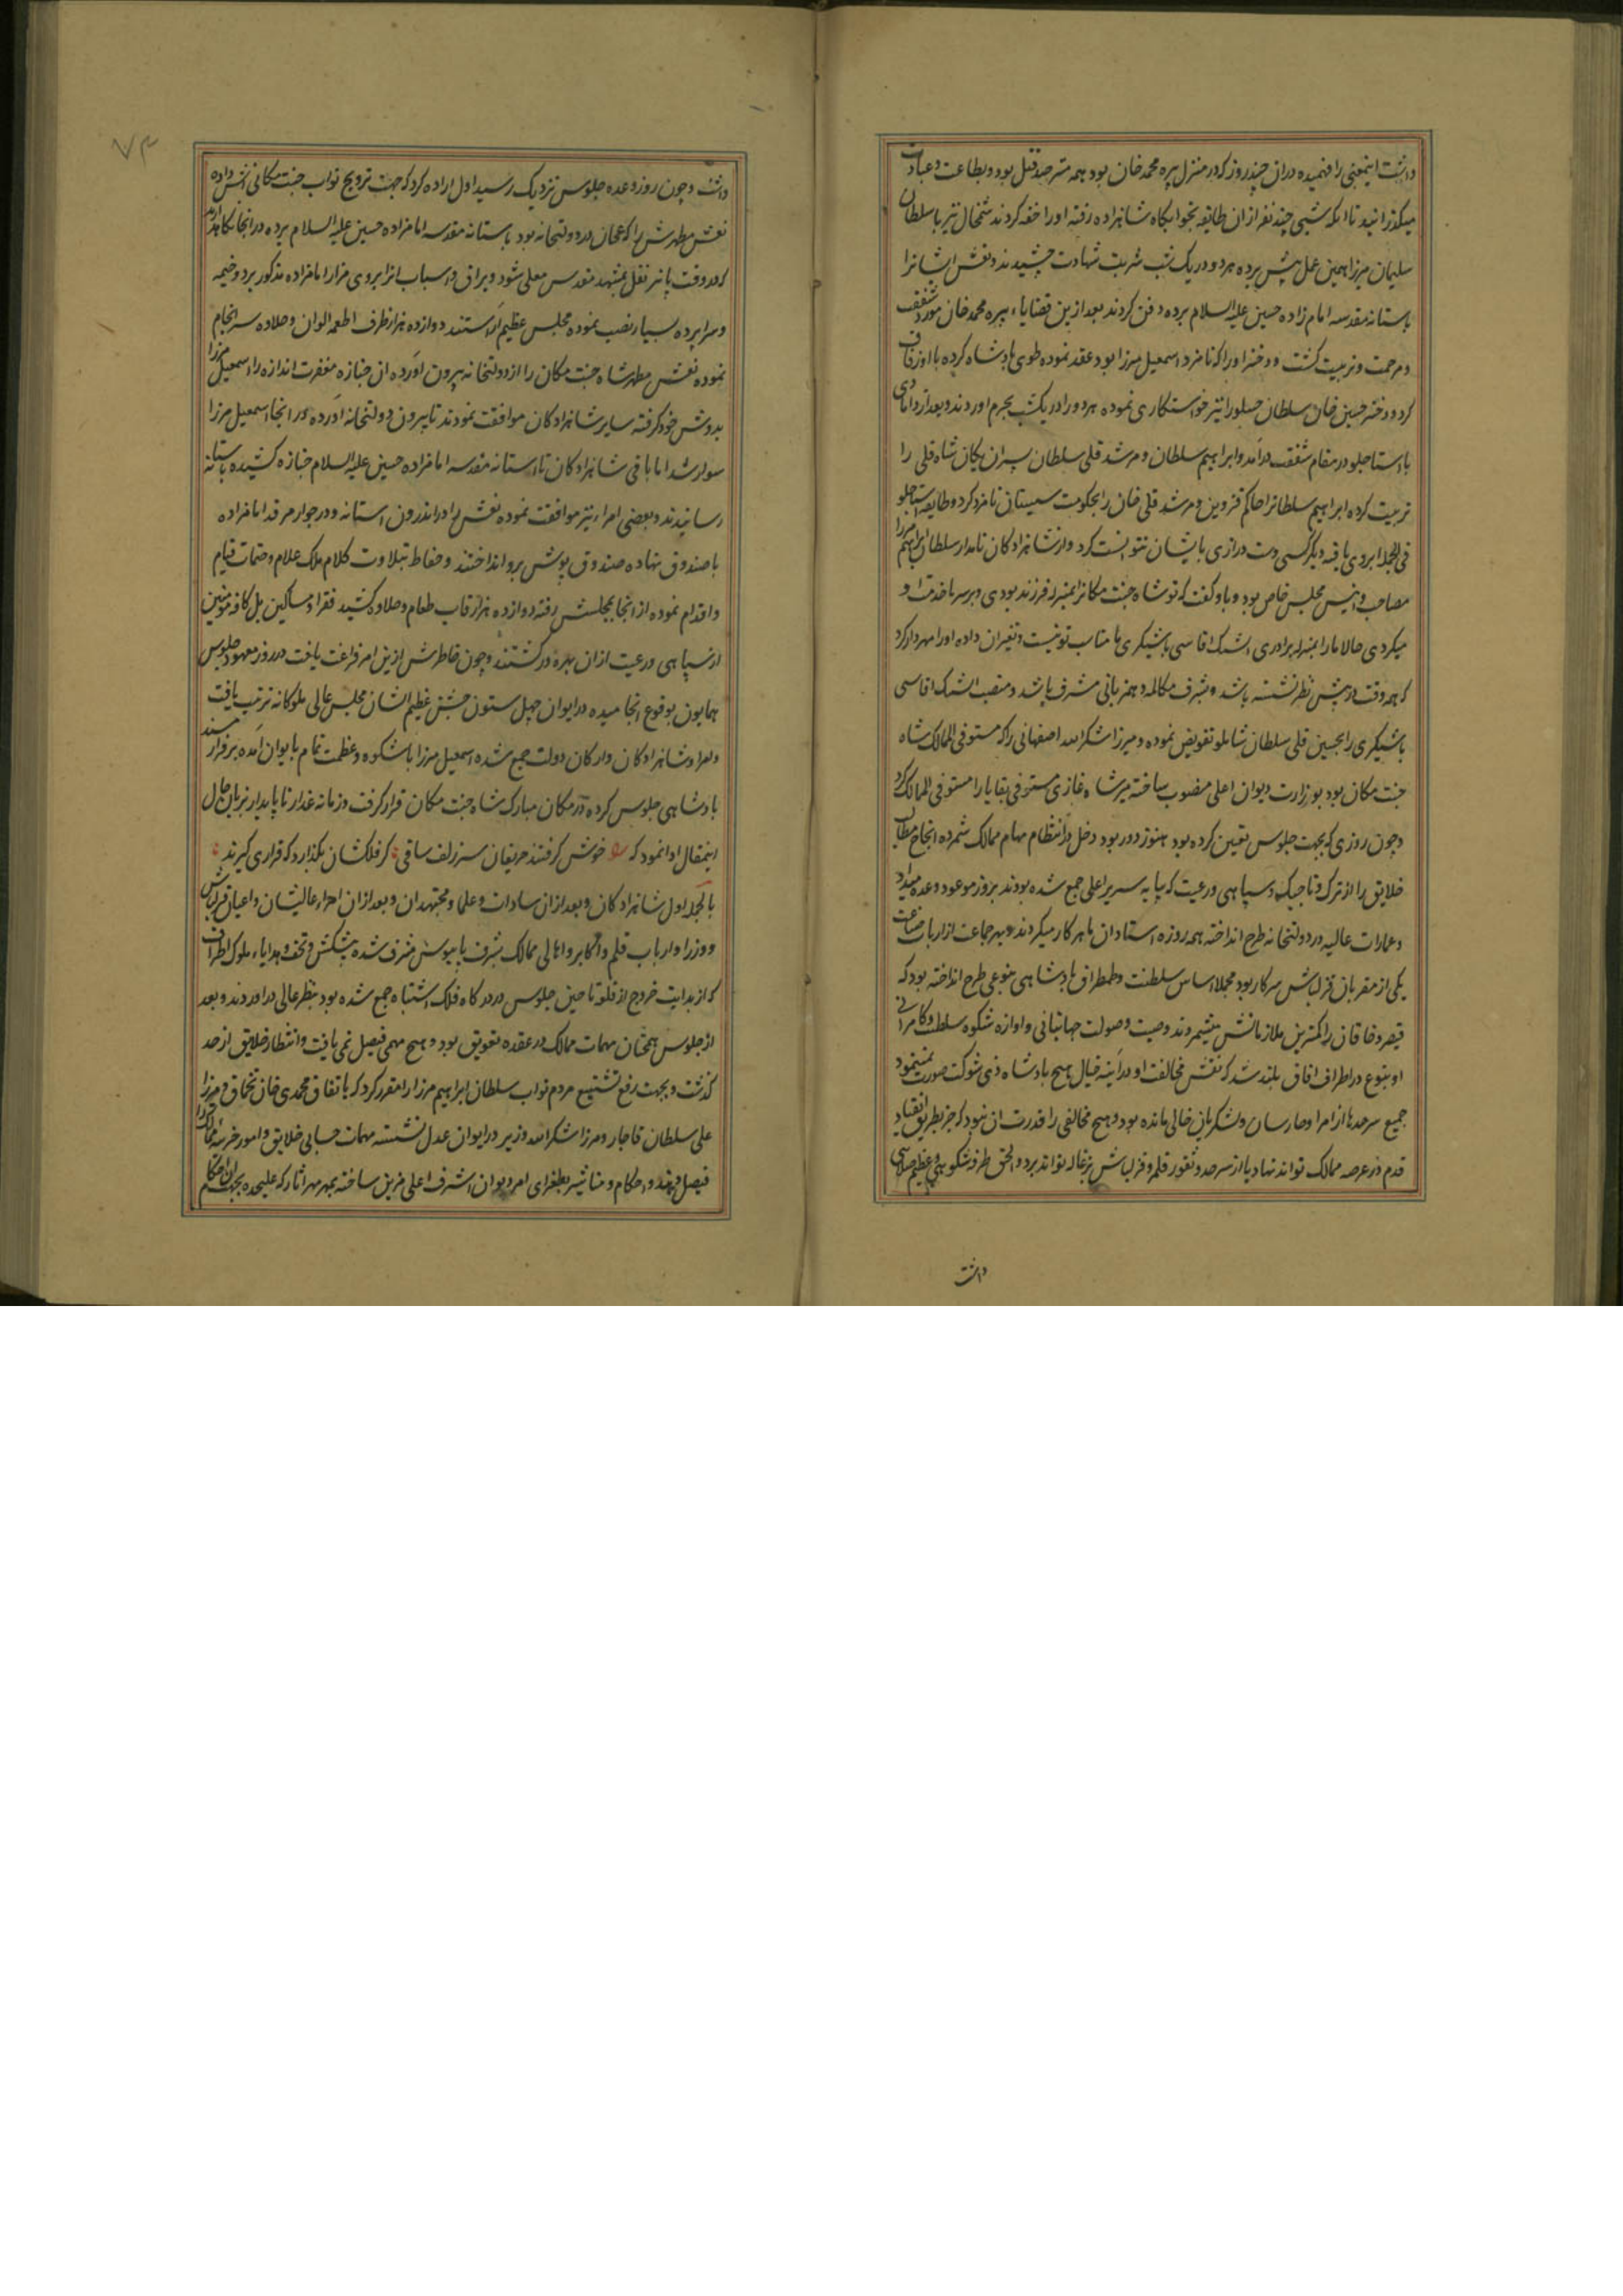 داشت اینمعنی را فهمیده دران چند روز که در منزل پیره محمد خان بود همه مترصد قتل بود و بطاعت و عبادت
میگذرانید تا آنکه شبی چند نفر از ان طایفه بخوابگاه شاهزاده رفته او را خفه کردند شمخال نیز با سلطان
سلیمان میرزا همین عمل پیش برده هر دو در یک شب شربت شهادت چشیدند و نعش ایشانرا
باستانه مقدسه امام زاده حسین علیه السلام برده دفن کردند بعد ازین قضایاء پیره محمد خان مورد شفقت
و مرحمت و تربیت گشت و دختر او را که نامزد اسمعیل میرزا بود عقد نموده طوی پادشاه کرده با او زفاف
کرد و دختر حسین خان سلطان خنسلو را نیز خواستکاری نموده هر دو را در یکشب بحرم اوردند و بعد از دامادی
با استاجلو در مقام شفقت درآمد و ابراهیم سلطان و مرشد قلی سلطان پسران یکان شاه قلی را
تربیت کرده ابراهیم سلطانرا حاکم قزوین و مرشد قلی خان را بحکومت سیستان نامزد کرد و طایفه استاجلو
فی الجمله ابروی یافته دیگر کسی دست درازی بایشان نتوانست کرد و از شاهزادکان نامدار سلطان ابراهیم میرزا
مصاحب و انیس مجلس خاص بود و باو گفت که تو شاه جنت مکانرا بمنزله فرزند بودی و برسر ما خدمت او
میکردی حالا ما را بمنزله برادری اشیک اقاسی باشیگری ما مناسب تو نیست و تغیر ان داده او را مهردار کرد
که همه وقت در پیش نظر نشسته باشد و بشرف مکالمه و همزبانی مشرف باشد و منصب اشیک اقاسی
باشیگری را بحسین قلی سلطان شاملو تفویض نموده و میرزا شکرالله اصفهانی را که مستوفی الممالک شاه
جنت مکان بود بوزارت دیوان اعلی منصوب ساخته میر شاه غازی مستوفی بقایا را مستوفی الممالک کرد
و چون روزی که بجهت جلوس تعیین کرده بود هنوز دور بود دخل در انتظام مهام ممالک نمیکرده انجاح مطالب
خلایق را از ترک و تاجیک و سپاهی و رعیت که بپایه سریر اعلی جمع شده بودند بروز موعود وعده میداد
و عمارات عالیه در دولتخانه طرح انداخته همه روزه استادان ماهر کار میکردند و بهر جماعت از ارباب صناعت
یکی از مقربان قزلباش سرکار بود مجملا اساس سلطنت و طمطراق پادشاهی بنوعی طرح انداخته بود که
قیصر و خاقان را کمترین ملازمانش میشمردند و صیت و صولت جهانبانی و اوازه شکوه سلطنت و کامرانی
او بنوع در اطراف افاق بلند شد که نقش مخالفت او در آینه خیال هیچ پادشاه ذی شوکت صورت نمینمود
جمیع سرحدها از امرا و حارسان و لشکریان خالی مانده بود و هیچ مخالفی را قدرت ان نبود که جز بطریق انقیاد
قدم در عرصه ممالک تواند نهاد یا از سرحد و ثغور قلمرو قزلباش بزغاله تواند برد و الحق طرفه شکوهی و عظیم صلابتی
داشت
۷۳
داشت و چون روز وعده جلوس نزدیک رسید اول اراده کرد که جهت ترویح نواب جنت مکانی آش داده
نعش مطهرش را که همچنان در دولتخانه بود باستانه مقدسه امامزاده حسین علیه السلام برده در انجا نگاهدارند
که در وقت یا نیز نقل بمشهد مقدس معلی شود و یراق و اسباب انرا بروی مزار امامزاده مذکور برد و خیمه
و سراپرده بسیار نصب نموده مجلس عظیم آراستند دوازده هزار ظرف اطعمه الوان و حلاوه سرانجام
نموده نعش مطهر شاه جنت مکان را از دولتخانه بیرون آورده ان جنازه مغفرت اندازه را اسمعیل میرزا
بدوش خود گرفته سایر شاهزادکان موافقت نمودند تا بیرون دولتخانه آورده در انجا اسمعیل میرزا
سوار شد اما باقی شاهزادکان تا استانه مقدسه امامزاده حسین علیه السلام جنازه کشیده باستانه
رسانیدند و بعضی امراء نیز موافقت نموده نعش را در اندرون استانه و در جوار مرقد امامزاده
با صندوق نهاده صندوق پوش برو انداختند و حفاظ بتلاوت کلام ملک علام و ختمات قیام
و اقدام نموده از انجا بمجلس رفته دوازده هزار قاب طعام و حلاوه کشید فقراء و مساکین بل کافه مومنین
از سپاهی و رعیت ازان بهره ور گشتند و چون خاطرش ازین امر فراغت یافت در روز معهود جلوس
همایون بوقوع انجامیده در ایوان چهل ستون جشن عظیم الشان مجلس عالی ملوکانه ترتیب یافت
و امرا و شاهزادکان و ارکان دولت جمع شده اسمعیل میرزا باشکوه و عظمت تمام بایوان آمده بر فراز مسند
پادشاهی جلوس کرده در مکان مبارک شاه جنت مکان قرار گرفت و زمانه غدار ناپایدار بزبان حال
اینمقال ادا نمود که خوش گرفتند حریفان سر زلف ساقی گر فلکشان بگذارد که قراری گیرند
بالجمله اول شاهزادکان و بعد ازان سادات و علما و مجتهدان و بعد ازان امراء عالیشان و اعیان قزلباش
و وزرا و ارباب قلم و اکابر و اهالی ممالک بشرف پابوس مشرف شده پیشکش و تحف و هدایاء ملوک اطراف
که از بدایت خروج از قلعه تا حین جلوس در درگاه فلک اشتباه جمع شده بود بنظر عالی در اوردند و بعد
از جلوس همچنان مهمات ممالک در عقده تعویق بود و هیچ مهمی فیصل نمی یافت و انتظار خلایق از حد
گذشت و بجهت رفع تشنیع مردم نواب سلطان ابراهیم میرزا را مقرر کرد که باتفاق محمدی خان تخماق و میرزا
علی سلطان قاجار و میرزا شکرالله وزیر در ایوان عدل نشسته مهمات حسابی خلایق و امور جزئیه ممالک را
فیصل دهند و احکام و مناشیر بطغرای امر دیوان اشرف اعلی مزین ساخته بمهر مهر اثار که علیحده بجهت ان احکام